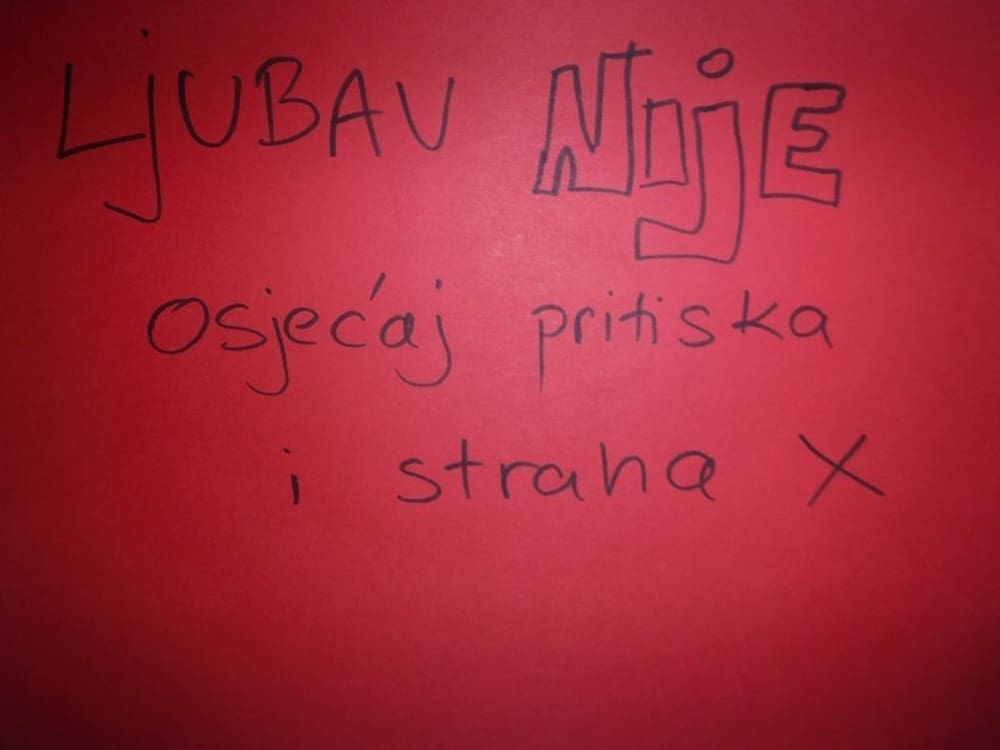 LjUBAV NijE
Osjećaj pritiska
i straha X